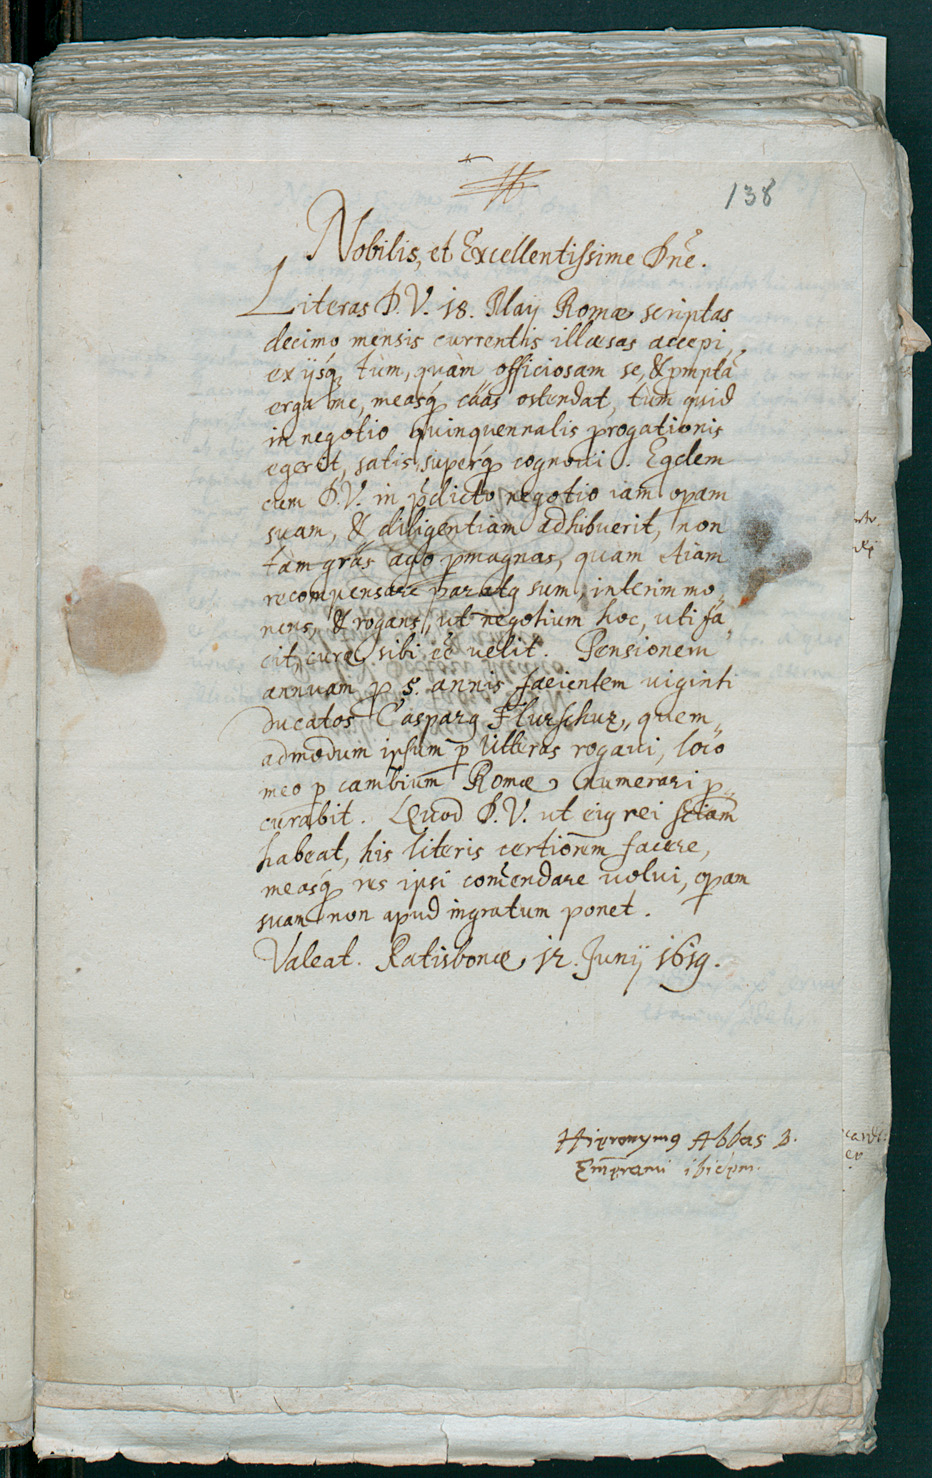 138
Nobilis, et Excellentissime Dn̄e.
Literas D. V. 18. Maij Romæ scriptas
decimo mensis currentis illæsas accepi,
ex ijsq́ tùm, quàm officiosam se, & p̱mptã
erga me, measq́ cāās ostendat, tùm quid
in negotio quinquennalis p̱rogationis
egerit, satis, superq́ cognovi. Eqdem
cum D. V. in p̄dicto negotio iam oꝑam
suam, & diligentiam adhibuerit, non
tàm grãs ago ꝑmagnas, quam etiam
recompensare paratꝯ sum, interim mo„
nens, & rogans, ut negotium hoc, uti fa„
cit, curæ sibi eē velit. Pensionem
annuam ꝓ 5. annis facientem viginti
ducatos Casparꝯ Flurschuz, quem„
admodum ipsum ꝑ litteras rogavi, loco
meo ꝑ cambium Romæ numerari ꝓ„
curabit. Quod D. V. ut eiꝯ rei sciām
habeat, his literis certiorem facere,
measq́ res ipsi com̄endare volui, oꝑam
suam non apud ingratum ponet.
Valeat. Ratisbonæ 12. Junij 1619.
Hieronymꝯ Abbas S.
Em̄erami ibidem.